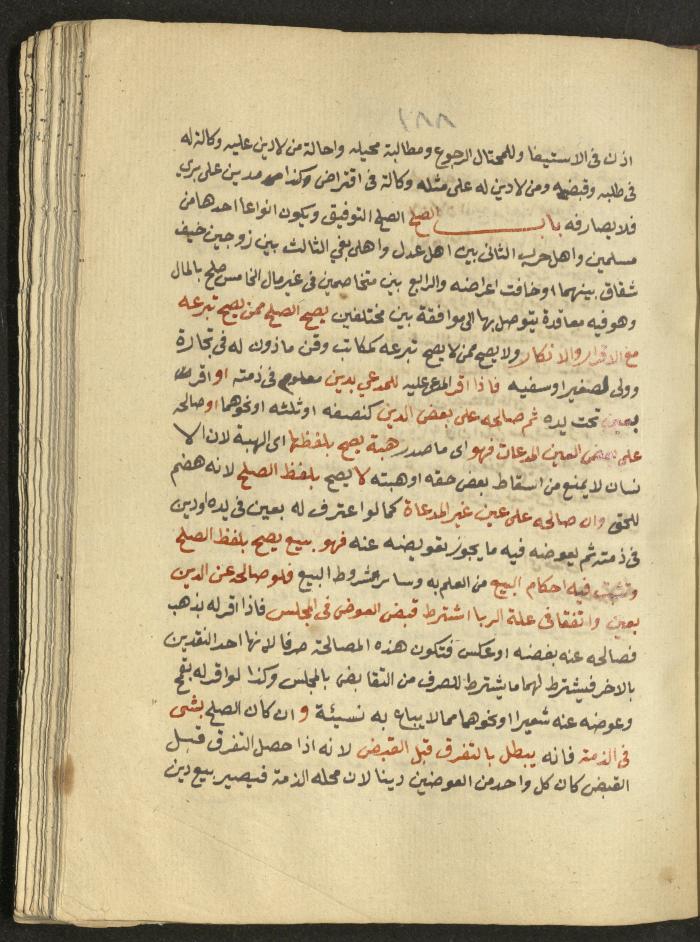 ١٨٨
اذن فى الاستيفا وللمحتال الرجوع ومطالبة محيله واحالة من لادين عليه وكالة له
فى طلبه وقبضه ومن لادين له على مثله وكالة فى اقتراض وكذا مدين على بري
فلا يصارفه باب الصلح الصلح التوفيق ويكون انواعا احدها من
مسلمين واهل حرب الثانى بين اهل عدل واهل بغي الثالث بين زوجين خيف
شقاق بينهما او خافت اعراضه والرابع بين متخاصمين فى غير مال الخامس صلح بالمال
وهو فيه معاقدة يتوصل بها الى موافقة بين مختلفين يصح الصلح ممن يصح تبرعه
مع الاقرار والانكار ولا يصح ممن لا يصح تبرعه كمكاتب وقن ماذون له فى تجارة
وولى لصغير او سفيه فاذا اقر المدعى عليه للمدعي بدين معلوم فى ذمته او اقر
بعين تحت يده ثم صالحه على بعض الدين كنصفه او ثلثه او نحوهما او صالحه
على بعض العين المدعات فهو اى ما صدر هبة يصح بلفظها اى الهبة لان الا
نسان لا يمنع من اسقاط بعض حقه او هبته لا يصح بلفظ الصلح لانه هضم
للحق وان صالحه على عين غير المدعاة كما لو اعترف له بعين فى يده او دين
فى ذمته ثم يعوضه فيه ما يجوز تعويضه عنه فهو بيع يصح بلفظ الصلح
وتثبت فيه احكام البيع من العلم به وسائر شروط البيع فلو صالحه عن الدين
بعين واتفقا فى علة الربا اشترط قبض العوض فى المجلس فاذا اقر له بذهب
فصالحه عنه بفضه او عكس فتكون هذه المصالحة صرفا لانها احد النقدين
بالاخر فيشترط لهما ما يشترط للصرف من التقابض بالمجلس وكذا لو اقر له بقمح
وعوضه عنه شعيرا او نحوهما مما لا يباع به نسيئة و ان كان الصلح بشى
فى الذمة فانه يبطل بالتفرق قبل القبض لانه اذا حصل التفرق قبل
القبض كان كل واحد من العوضين دينا لان محله الذمة فيصير بيع دين